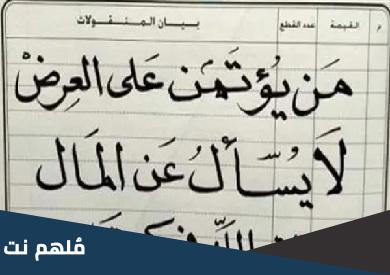 بيان المنقولات عدد القطع القيمة م
مَن يُؤتَمَن عَلى العِرضْ
لَا يُسَّأَلُ عَن المَال
مُلهم نت